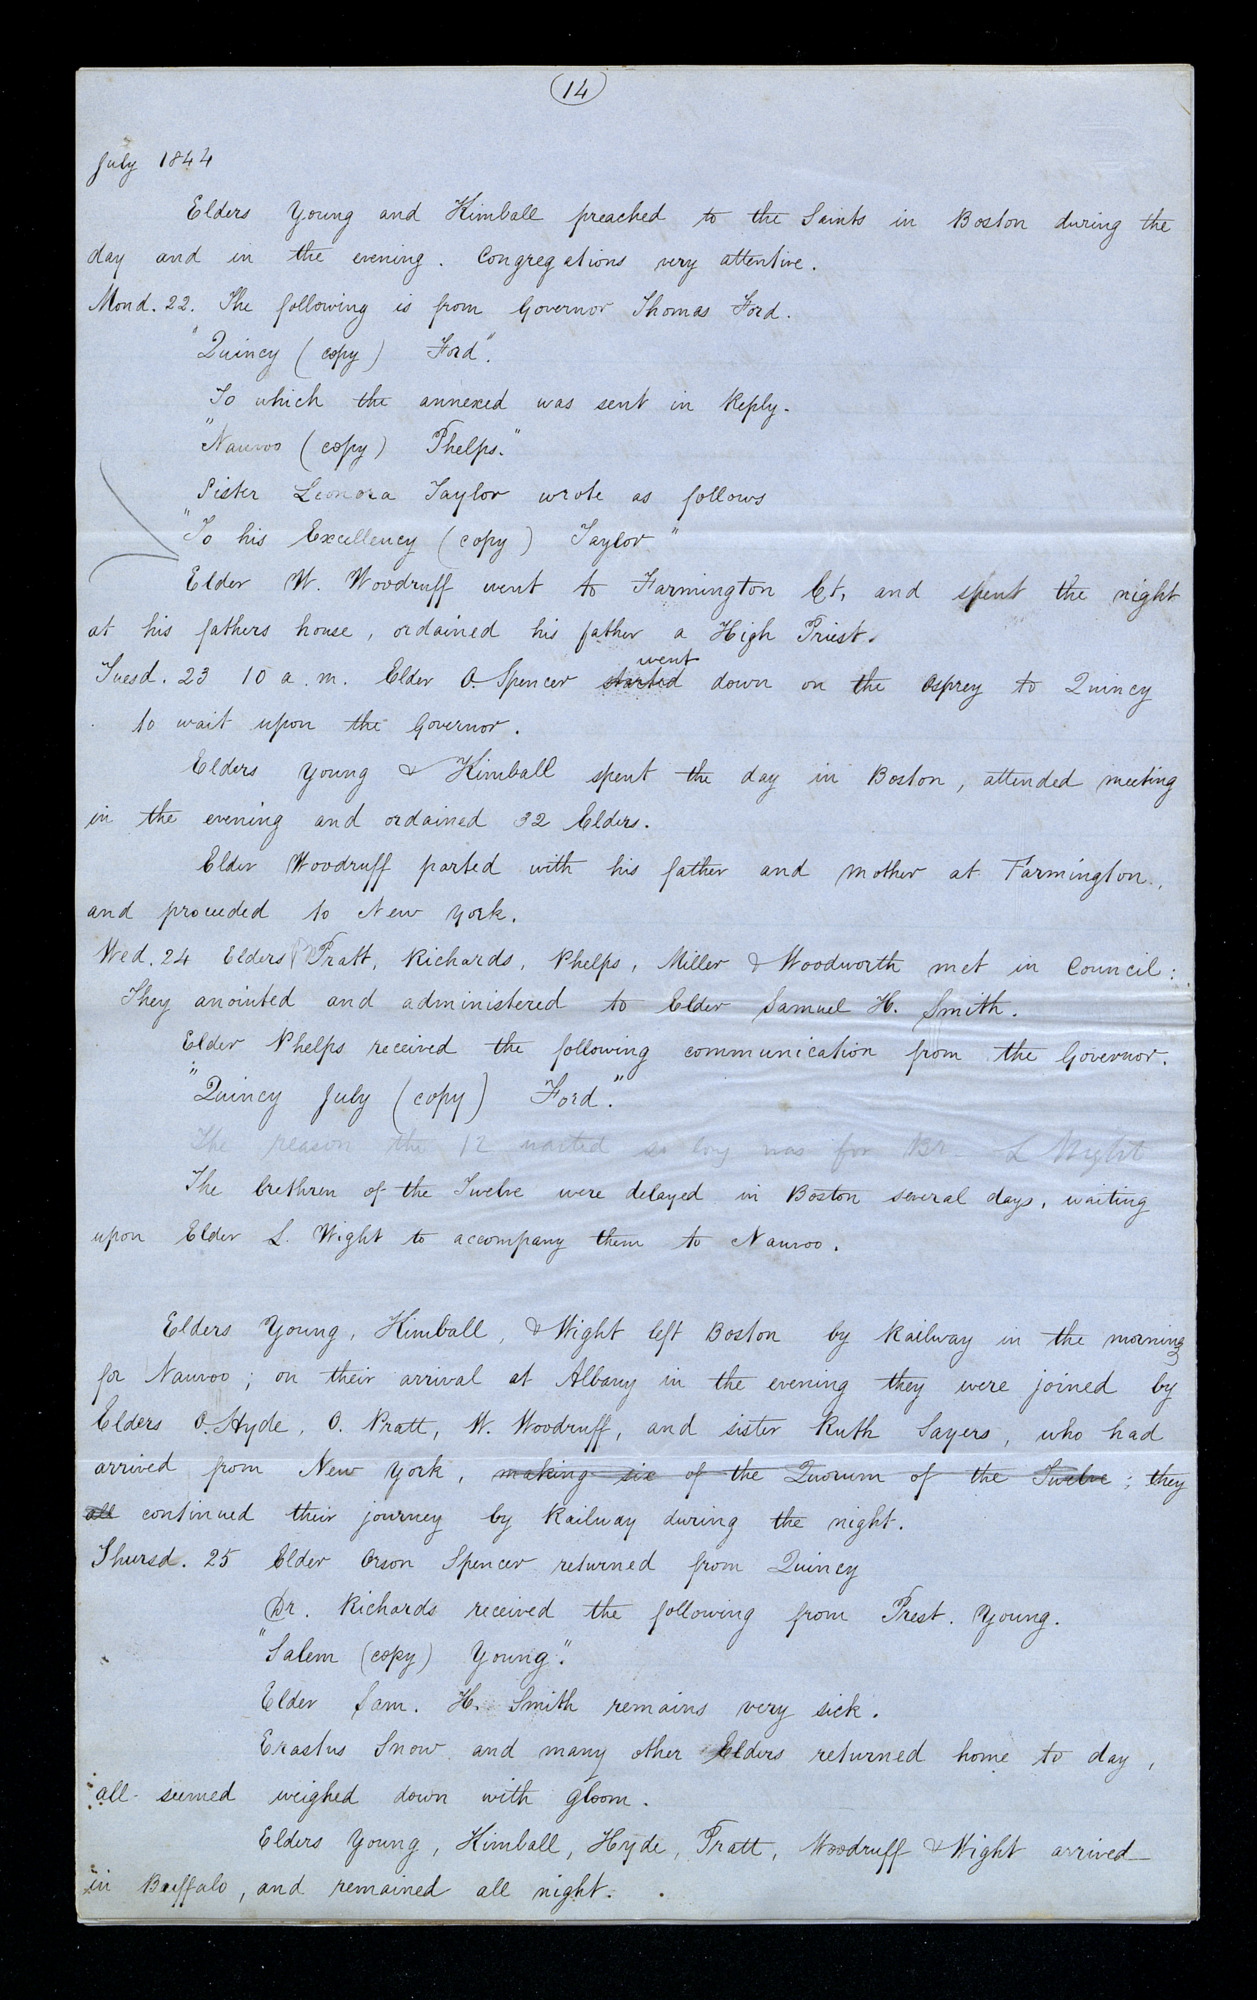 14
July 1844
Elders Young and Kimball preached to the Saints in Boston during the
day and in the evening. Congregations very attentive.
Mond. 22. The following is from Governor Thomas Ford.
"Quincy (copy) Ford".
To which the annexed was sent in Reply.
"Nauvoo (copy) Phelps."
Sister Leonora Taylor wrote as follows
"To his Excellency (copy) Taylor"
Elder W. Woodruff went to Farmington Ct, and spent the night
at his fathers house, ordained his father a High Priest.
went
Tuesd. 23 10 a.m. Elder O. Spencer started down on the Osprey to Quincy
to wait upon the Governor.
Elders Young & Kimball spent the day in Boston, attended meeting
in the evening and ordained 32 Elders.
Elder Woodruff parted with his father and mother at Farmington,
and proceeded to New York.
Wed. 24 Elders Pratt, Richards, Phelps, Miller & Woodworth met in Council:
They anointed and administered to Elder Samuel H. Smith.
Elder Phelps received the following communication from the Governor.
"Quincy July (copy) Ford."
The reason the 12 waited so long was for Br L Wight
The brethren of the Twelve were delayed in Boston several days, waiting
upon Elder L. Wight to accompany them to Nauvoo.
Elders Young, Kimball, & Wight left Boston by Railway in the morning
for Nauvoo; on their arrival at Albany in the evening they were joined by
Elders O. Hyde, O. Pratt, W. Woodruff, and sister Ruth Sayers, who had
arrived from New York, making six of the Quorum of the Twelve; they
all continued their journey by Railway during the night.
Thursd. 25 Elder Orson Spencer returned from Quincy
Dr. Richards received the following from Prest. Young.
"Salem (copy) Young".
Elder Sam. H. Smith remains very sick.
Erastus Snow and many other Elders returned home to day,
all seemed weighed down with gloom.
Elders Young, Kimball, Hyde, Pratt, Woodruff & Wight arrived
in Buffalo, and remained all night.